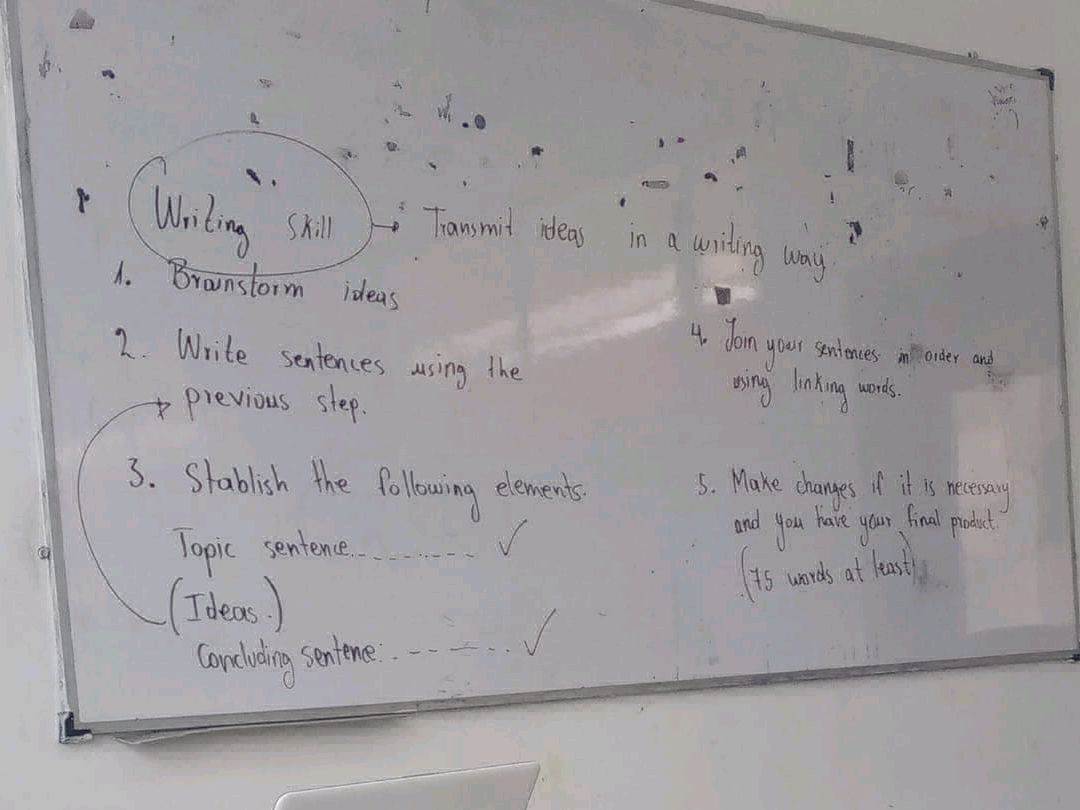 Writing Skill → Transmit ideas in a writing way
1. Brainstorm ideas
2. Write sentences using the
previous step.
3. Stablish the following elements.
Topic sentence..--------- ✓
(Ideas.)
Concluding sentence:.------.. ✓
4. Join your sentences in order and
using linking words.
5. Make changes if it is necessary
and you have your final product.
(75 words at least)